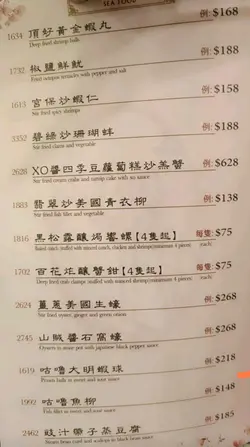 SEA FOOD
1634 頂好黃金蝦丸 例: $168
Deep fried shrimp balls
1732 椒鹽鮮魷 例: $188
Fried octopus tentacles with pepper and salt
1613 宮保炒蝦仁 例: $158
Stir fried spicy shrimps
3352 碧綠炒珊瑚蚌 例: $188
Stir fried clams and vegetable
2628 XO醬四季豆蘿蔔糕炒羔蟹 例: $628
Stir fried cream crabs and turnip cake with xo sauce
1883 翡翠炒美國青衣柳 例: $138
Stir fried fish fillet and vegetable
1816 黑松露釀焗響螺【4隻起】 每隻: $75
Baked conch stuffed with minced conch, chicken and shrimp(minimum 4 pieces) (each)
1702 百花炸釀蟹鉗【4隻起】 每隻: $75
Deep fried crab clumps stuffed with minced shrimp(minimum 4 pieces) (each)
2624 薑蔥美國生蠔 例: $268
Stir fried oyster, ginger and green onion
2745 山賊醬石窩蠔 例: $268
Oysters in stone pot with japanese black pepper sauce
1619 咕嚕大明蝦球 例: $218
Prawn balls in sweet and sour sauce
1992 咕嚕魚柳 例: $148
Fish fillet in sweet and sour sauce
2462 豉汁帶子蒸豆腐 例: $185
Steam bean curd and scallops in black bean sauce